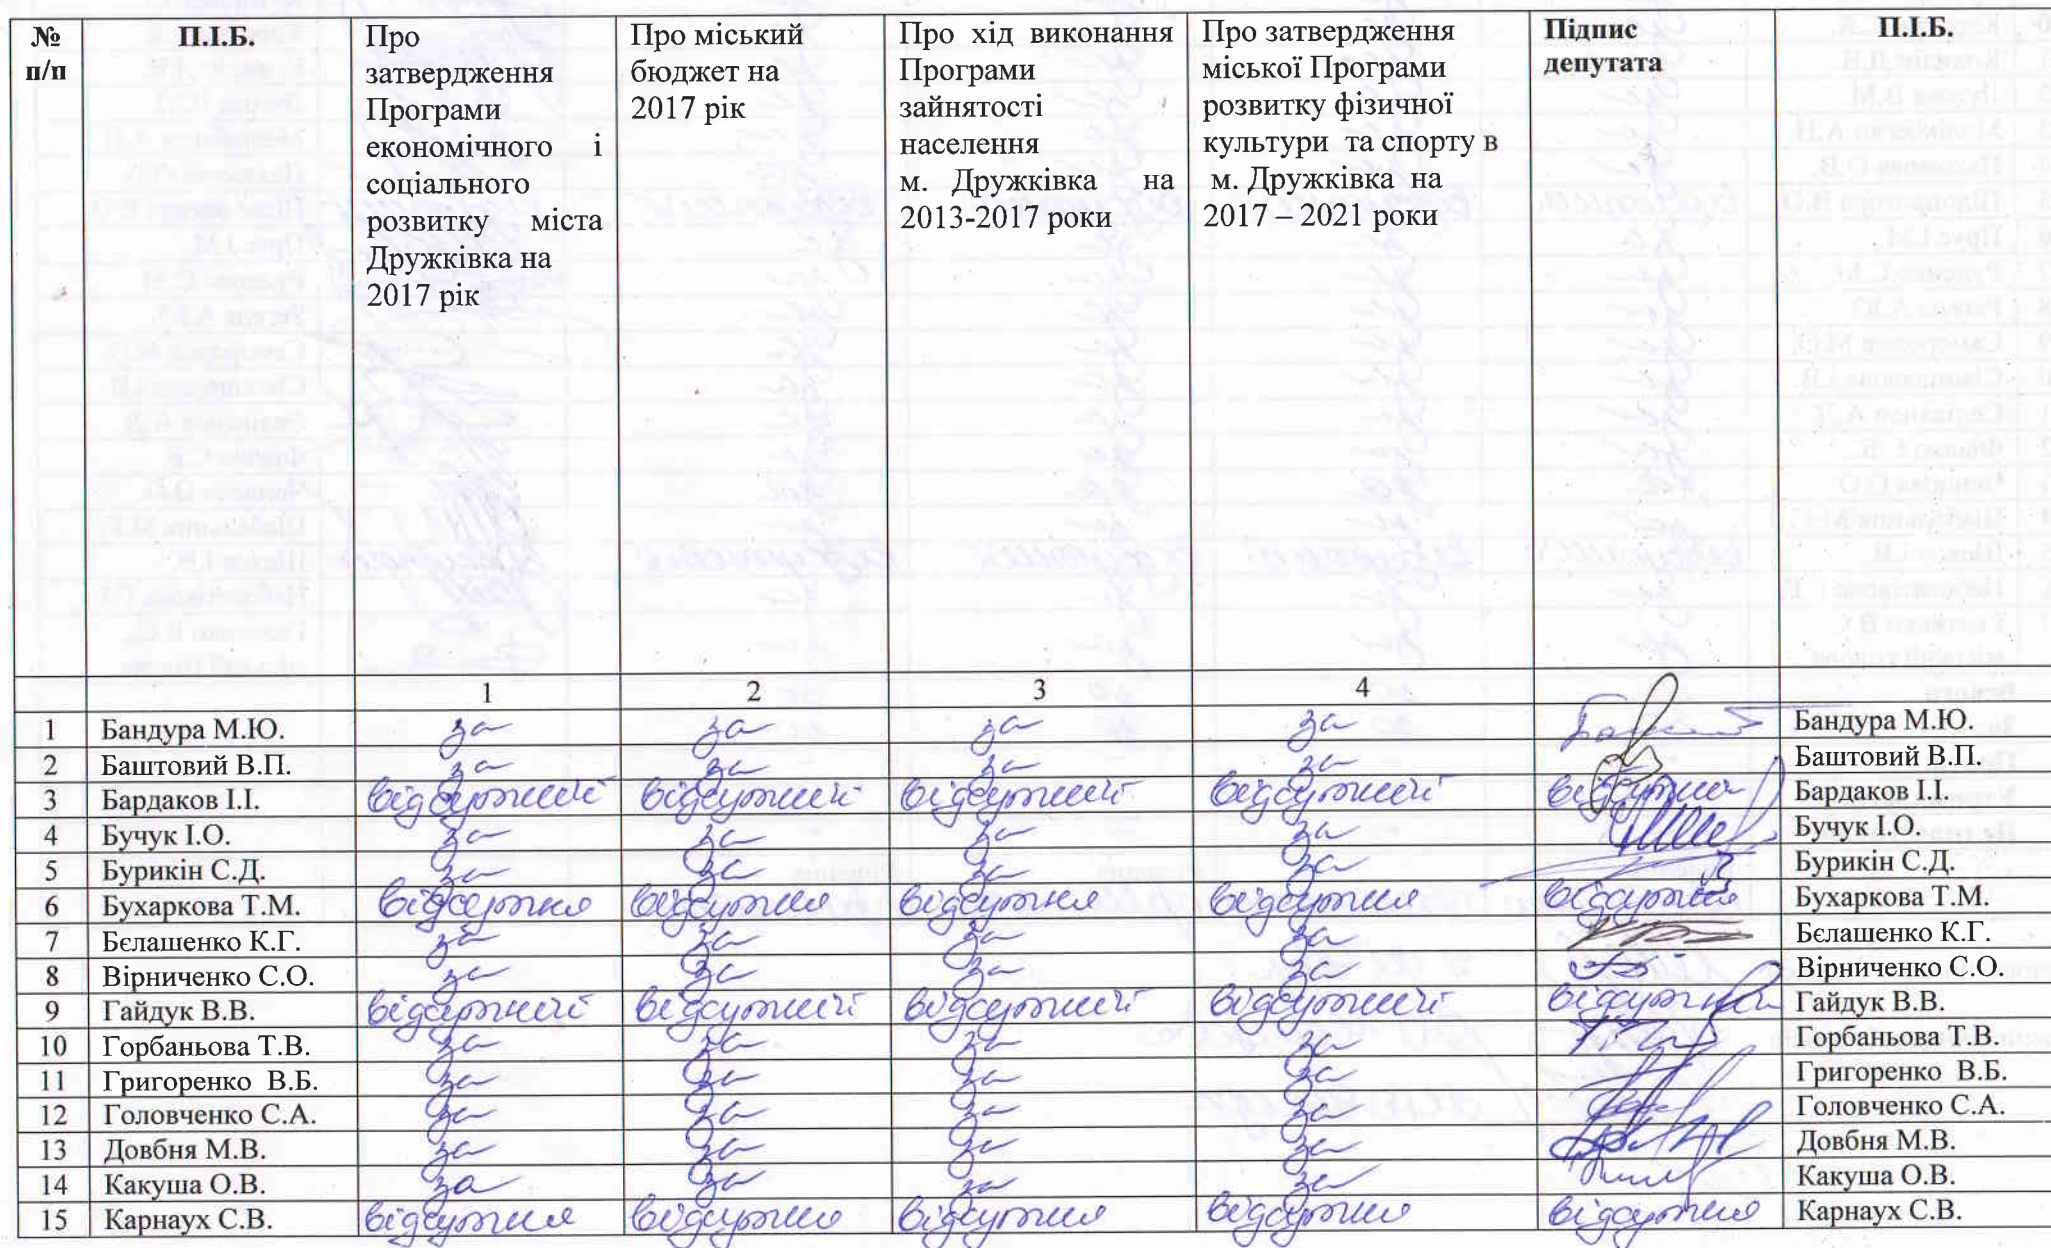 № п/п П.І.Б. Про затвердження Програми економічного і соціального розвитку міста Дружківка на 2017 рік Про міський бюджет на 2017 рік Про хід виконання Програми зайнятості населення м. Дружківка на 2013-2017 роки Про затвердження міської Програми розвитку фізичної культури та спорту в м. Дружківка на 2017 – 2021 роки Підпис депутата П.І.Б.
1 2 3 4
1 Бандура М.Ю. за за за за Бандура М.Ю.
2 Баштовий В.П. за за за за Баштовий В.П.
3 Бардаков І.І. відсутній відсутній відсутній відсутній відсутній Бардаков І.І.
4 Бучук І.О. за за за за Бучук І.О.
5 Бурикін С.Д. за за за за Бурикін С.Д.
6 Бухаркова Т.М. відсутня відсутня відсутня відсутня відсутня Бухаркова Т.М.
7 Бєлашенко К.Г. за за за за Бєлашенко К.Г.
8 Вірниченко С.О. за за за за Вірниченко С.О.
9 Гайдук В.В. відсутній відсутній відсутній відсутній відсутній Гайдук В.В.
10 Горбаньова Т.В. за за за за Горбаньова Т.В.
11 Григоренко В.Б. за за за за Григоренко В.Б.
12 Головченко С.А. за за за за Головченко С.А.
13 Довбня М.В. за за за за Довбня М.В.
14 Какуша О.В. за за за за Какуша О.В.
15 Карнаух С.В. відсутня відсутня відсутня відсутня відсутня Карнаух С.В.